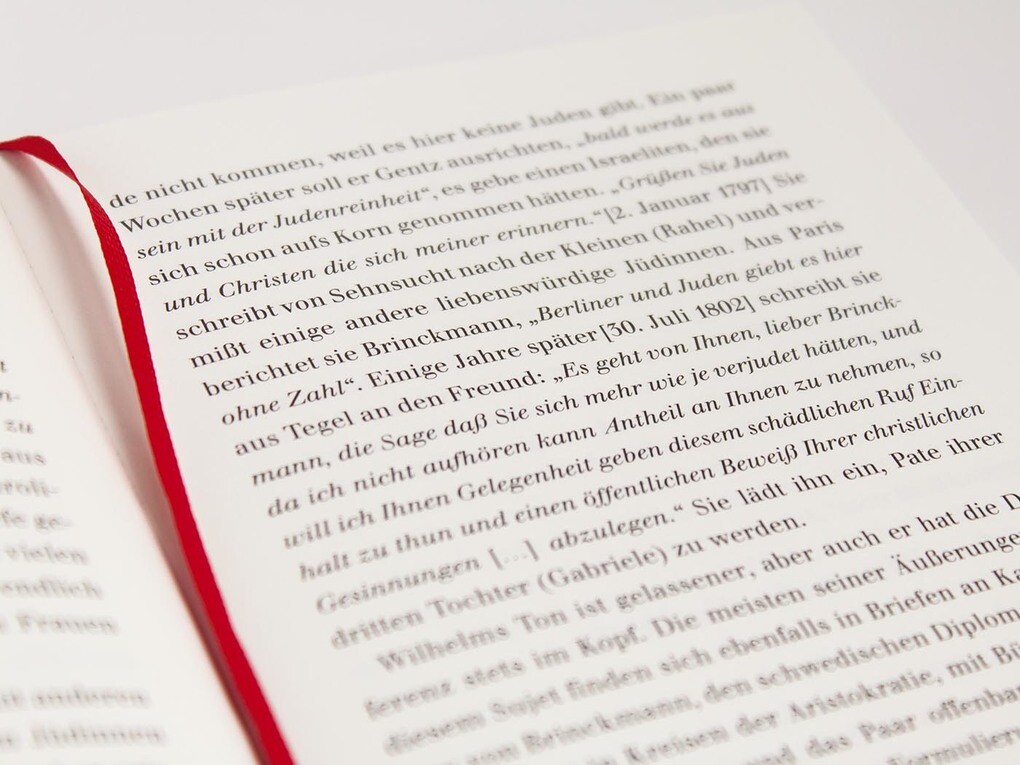 n-
zu
aus
ge-
vielen
endlich
Frauen
anderen
Jüdinnen
de nicht kommen, weil es hier keine Juden gibt. Ein paar
Wochen später soll er Gentz ausrichten, „bald werde es aus
sein mit der Judenreinheit“, es gebe einen Israeliten, den sie
sich schon aufs Korn genommen hätten. „Grüßen Sie Juden
und Christen die sich meiner erinnern.“[2. Januar 1797] Sie
schreibt von Sehnsucht nach der Kleinen (Rahel) und ver-
mißt einige andere liebenswürdige Jüdinnen. Aus Paris
berichtet sie Brinckmann, „Berliner und Juden giebt es hier
ohne Zahl“. Einige Jahre später[30. Juli 1802] schreibt sie
aus Tegel an den Freund: „Es geht von Ihnen, lieber Brinck-
mann, die Sage daß Sie sich mehr wie je verjudet hätten, und
da ich nicht aufhören kann Antheil an Ihnen zu nehmen, so
will ich Ihnen Gelegenheit geben diesem schädlichen Ruf Ein-
halt zu thun und einen öffentlichen Beweiß Ihrer christlichen
Gesinnungen [...] abzulegen.“ Sie lädt ihn ein, Pate ihrer
dritten Tochter (Gabriele) zu werden.
Wilhelms Ton ist gelassener, aber auch er hat die D
ferenz stets im Kopf. Die meisten seiner Äußerunge
diesem Sujet finden sich ebenfalls in Briefen an Ka
von Brinckmann, den schwedischen Diplom
Kreisen der Aristokratie, mit Bü
und das Paar offenbar
Formulier